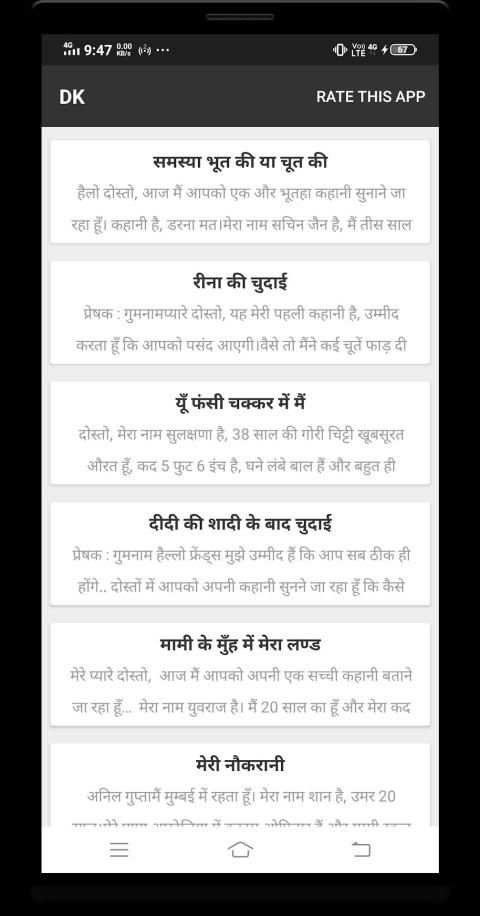 4G 9:47 0.00 KB/s ... Vo)) LTE 4G 67
DK RATE THIS APP
समस्या भूत की या चूत की
हैलो दोस्तो, आज मैं आपको एक और भूतहा कहानी सुनाने जा
रहा हूँ। कहानी है, डरना मत।मेरा नाम सचिन जैन है, मैं तीस साल
रीना की चुदाई
प्रेषक : गुमनामप्यारे दोस्तो, यह मेरी पहली कहानी है, उम्मीद
करता हूँ कि आपको पसंद आएगी।वैसे तो मैंने कई चूतें फाड़ दी
यूँ फंसी चक्कर में मैं
दोस्तो, मेरा नाम सुलक्षणा है, 38 साल की गोरी चिट्टी खूबसूरत
औरत हूँ, कद 5 फुट 6 इंच है, घने लंबे बाल हैं और बहुत ही
दीदी की शादी के बाद चुदाई
प्रेषक : गुमनाम हैल्लो फ्रेंड्स मुझे उम्मीद हैं कि आप सब ठीक ही
होंगे.. दोस्तों में आपको अपनी कहानी सुनने जा रहा हूँ कि कैसे
मामी के मुँह में मेरा लण्ड
मेरे प्यारे दोस्तो, आज मैं आपको अपनी एक सच्ची कहानी बताने
जा रहा हूँ... मेरा नाम युवराज है। मैं 20 साल का हूँ और मेरा कद
मेरी नौकरानी
अनिल गुप्तामैं मुम्बई में रहता हूँ। मेरा नाम शान है, उमर 20